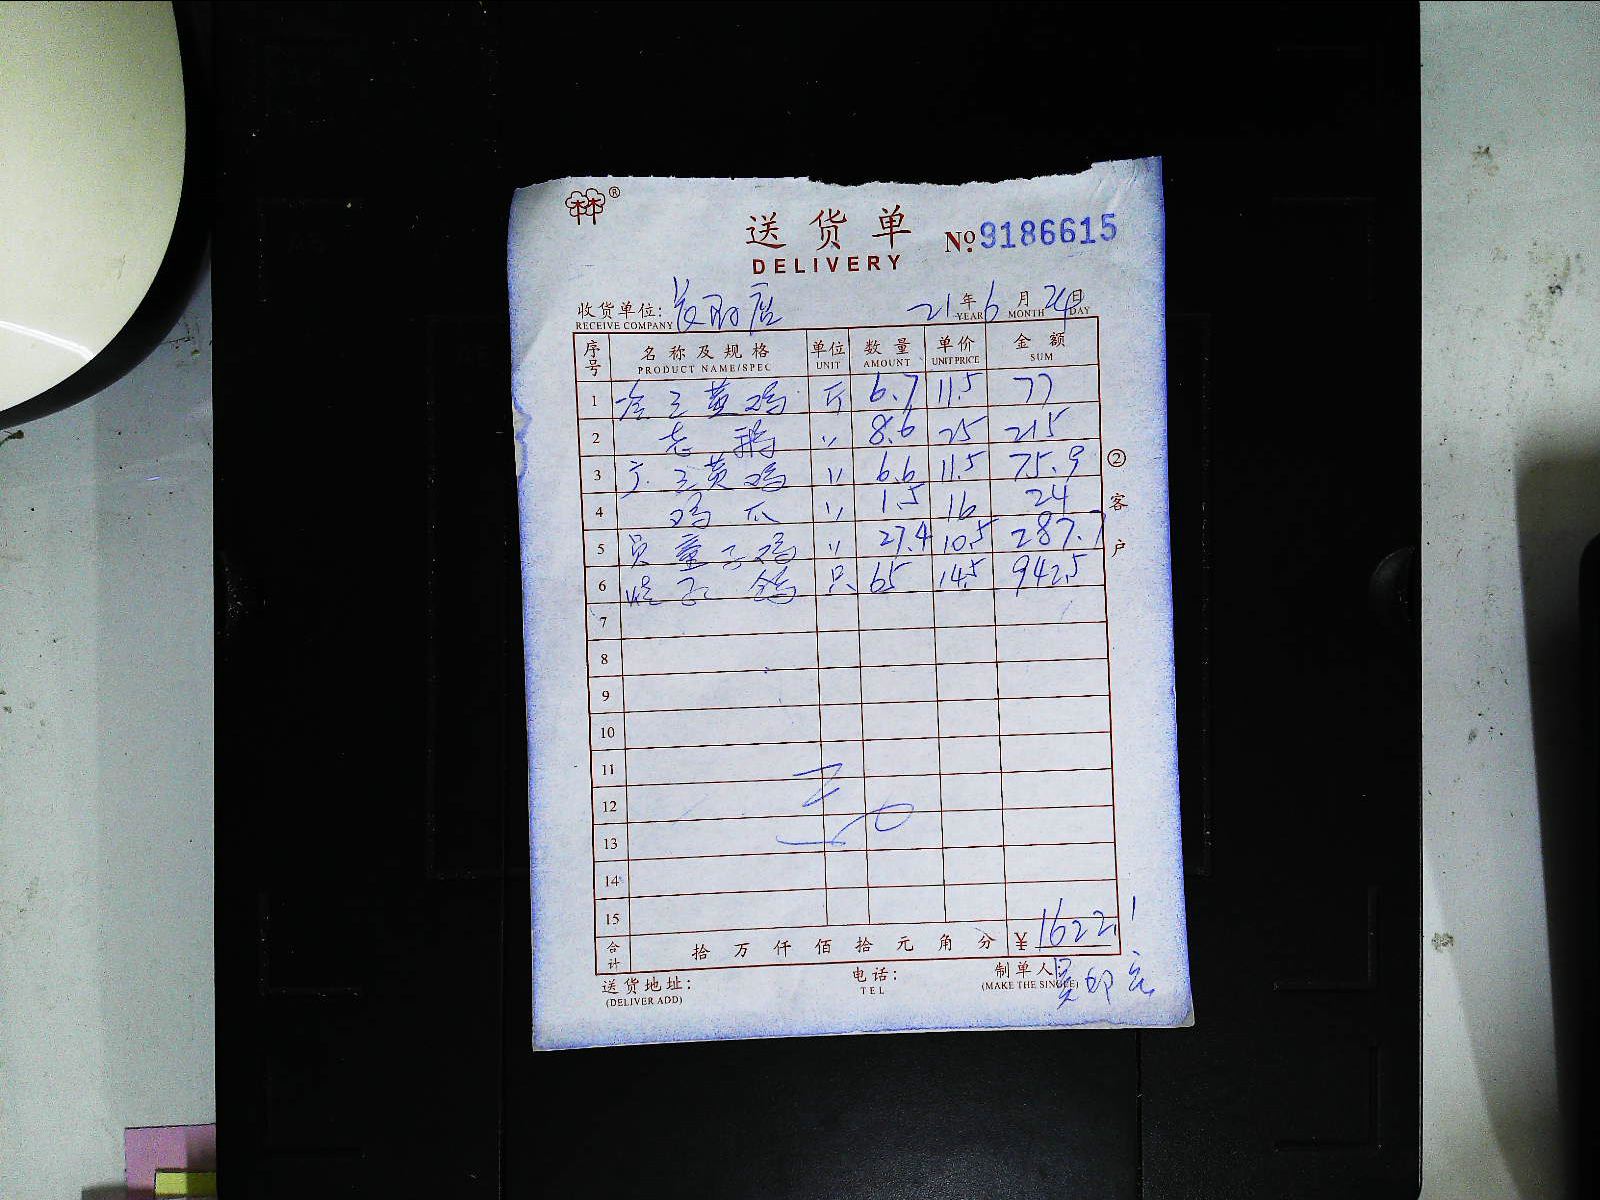 林®
送货单
DELIVERY
No. 9186615
收货单位: 21年6月24日
RECEIVE COMPANY YEAR MONTH DAY
序号 名称及规格 单位 数量 单价 金额
PRODUCT NAME/SPEC UNIT AMOUNT UNIT PRICE SUM
1 三黄鸡 斤 6.7 11.5 77
2 老鹅 〃 8.6 25 215
3 三黄鸡 〃 6.6 11.5 75.9
4 鸡爪 〃 1.5 16 24
5 童子鸡 〃 27.4 10.5 287.7
6 鸽 只 65 14.5 942.5
7
8
9
10
11
12
13
14
15
②客户
合计 拾万仟佰拾元角分 ¥1622.1
送货地址: 电话: 制单人:
(DELIVER ADD) TEL (MAKE THE SINGLE)